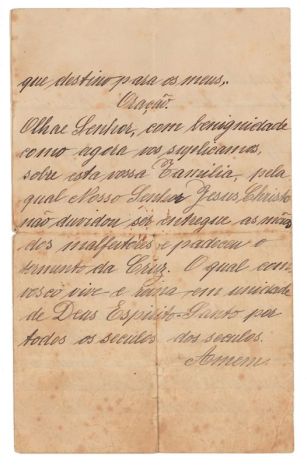 que destino para os meus,.
Oração.
Olhae Senhor, com benignidade
como agora vos suplicamos,
sobre esta vossa Familia, pela
qual Nosso Senhor Jesus Christo
não duvidou ser entregue as mãos
dos malfeitores e padecer o
tormento da Cruz. O qual com
vosco vive e reina em unidade
de Deus Espirito-Santo por
todos os seculos dos seculos.
Amem